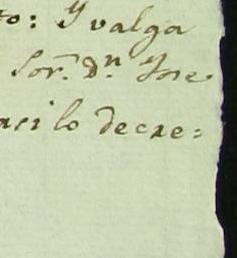 to: Y valga
Sor. Dn. Jose
asi lo decre=